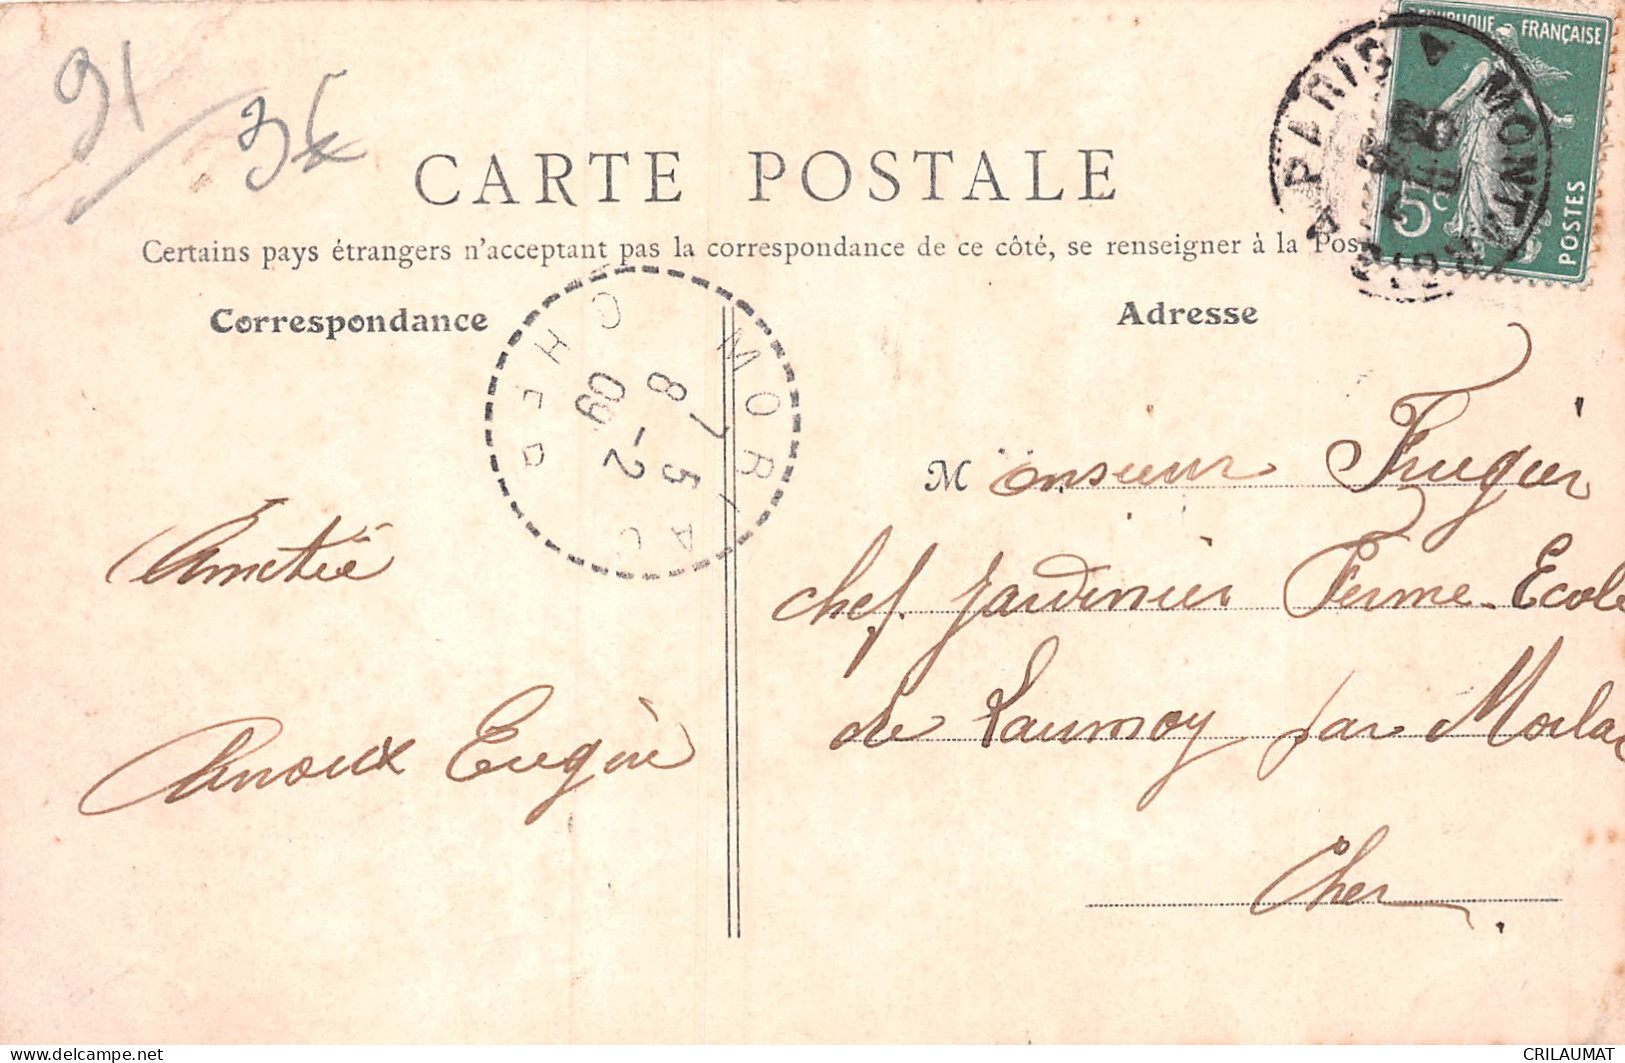 91
3€
CARTE POSTALE
Certains pays étrangers n'acceptant pas la correspondance de ce côté, se renseigner à la Pos
Correspondance
Adresse
RÉPUBLIQUE FRANÇAISE
5c
POSTES
PARIS
MORLAC
CHER
8 7 5
-2
09
Amitié
Arnoux Eugèn
Monsieur Frugier
chef jardinier Ferme-Ecole
de Laumoy par Morlac
Cher
CRILAUMAT